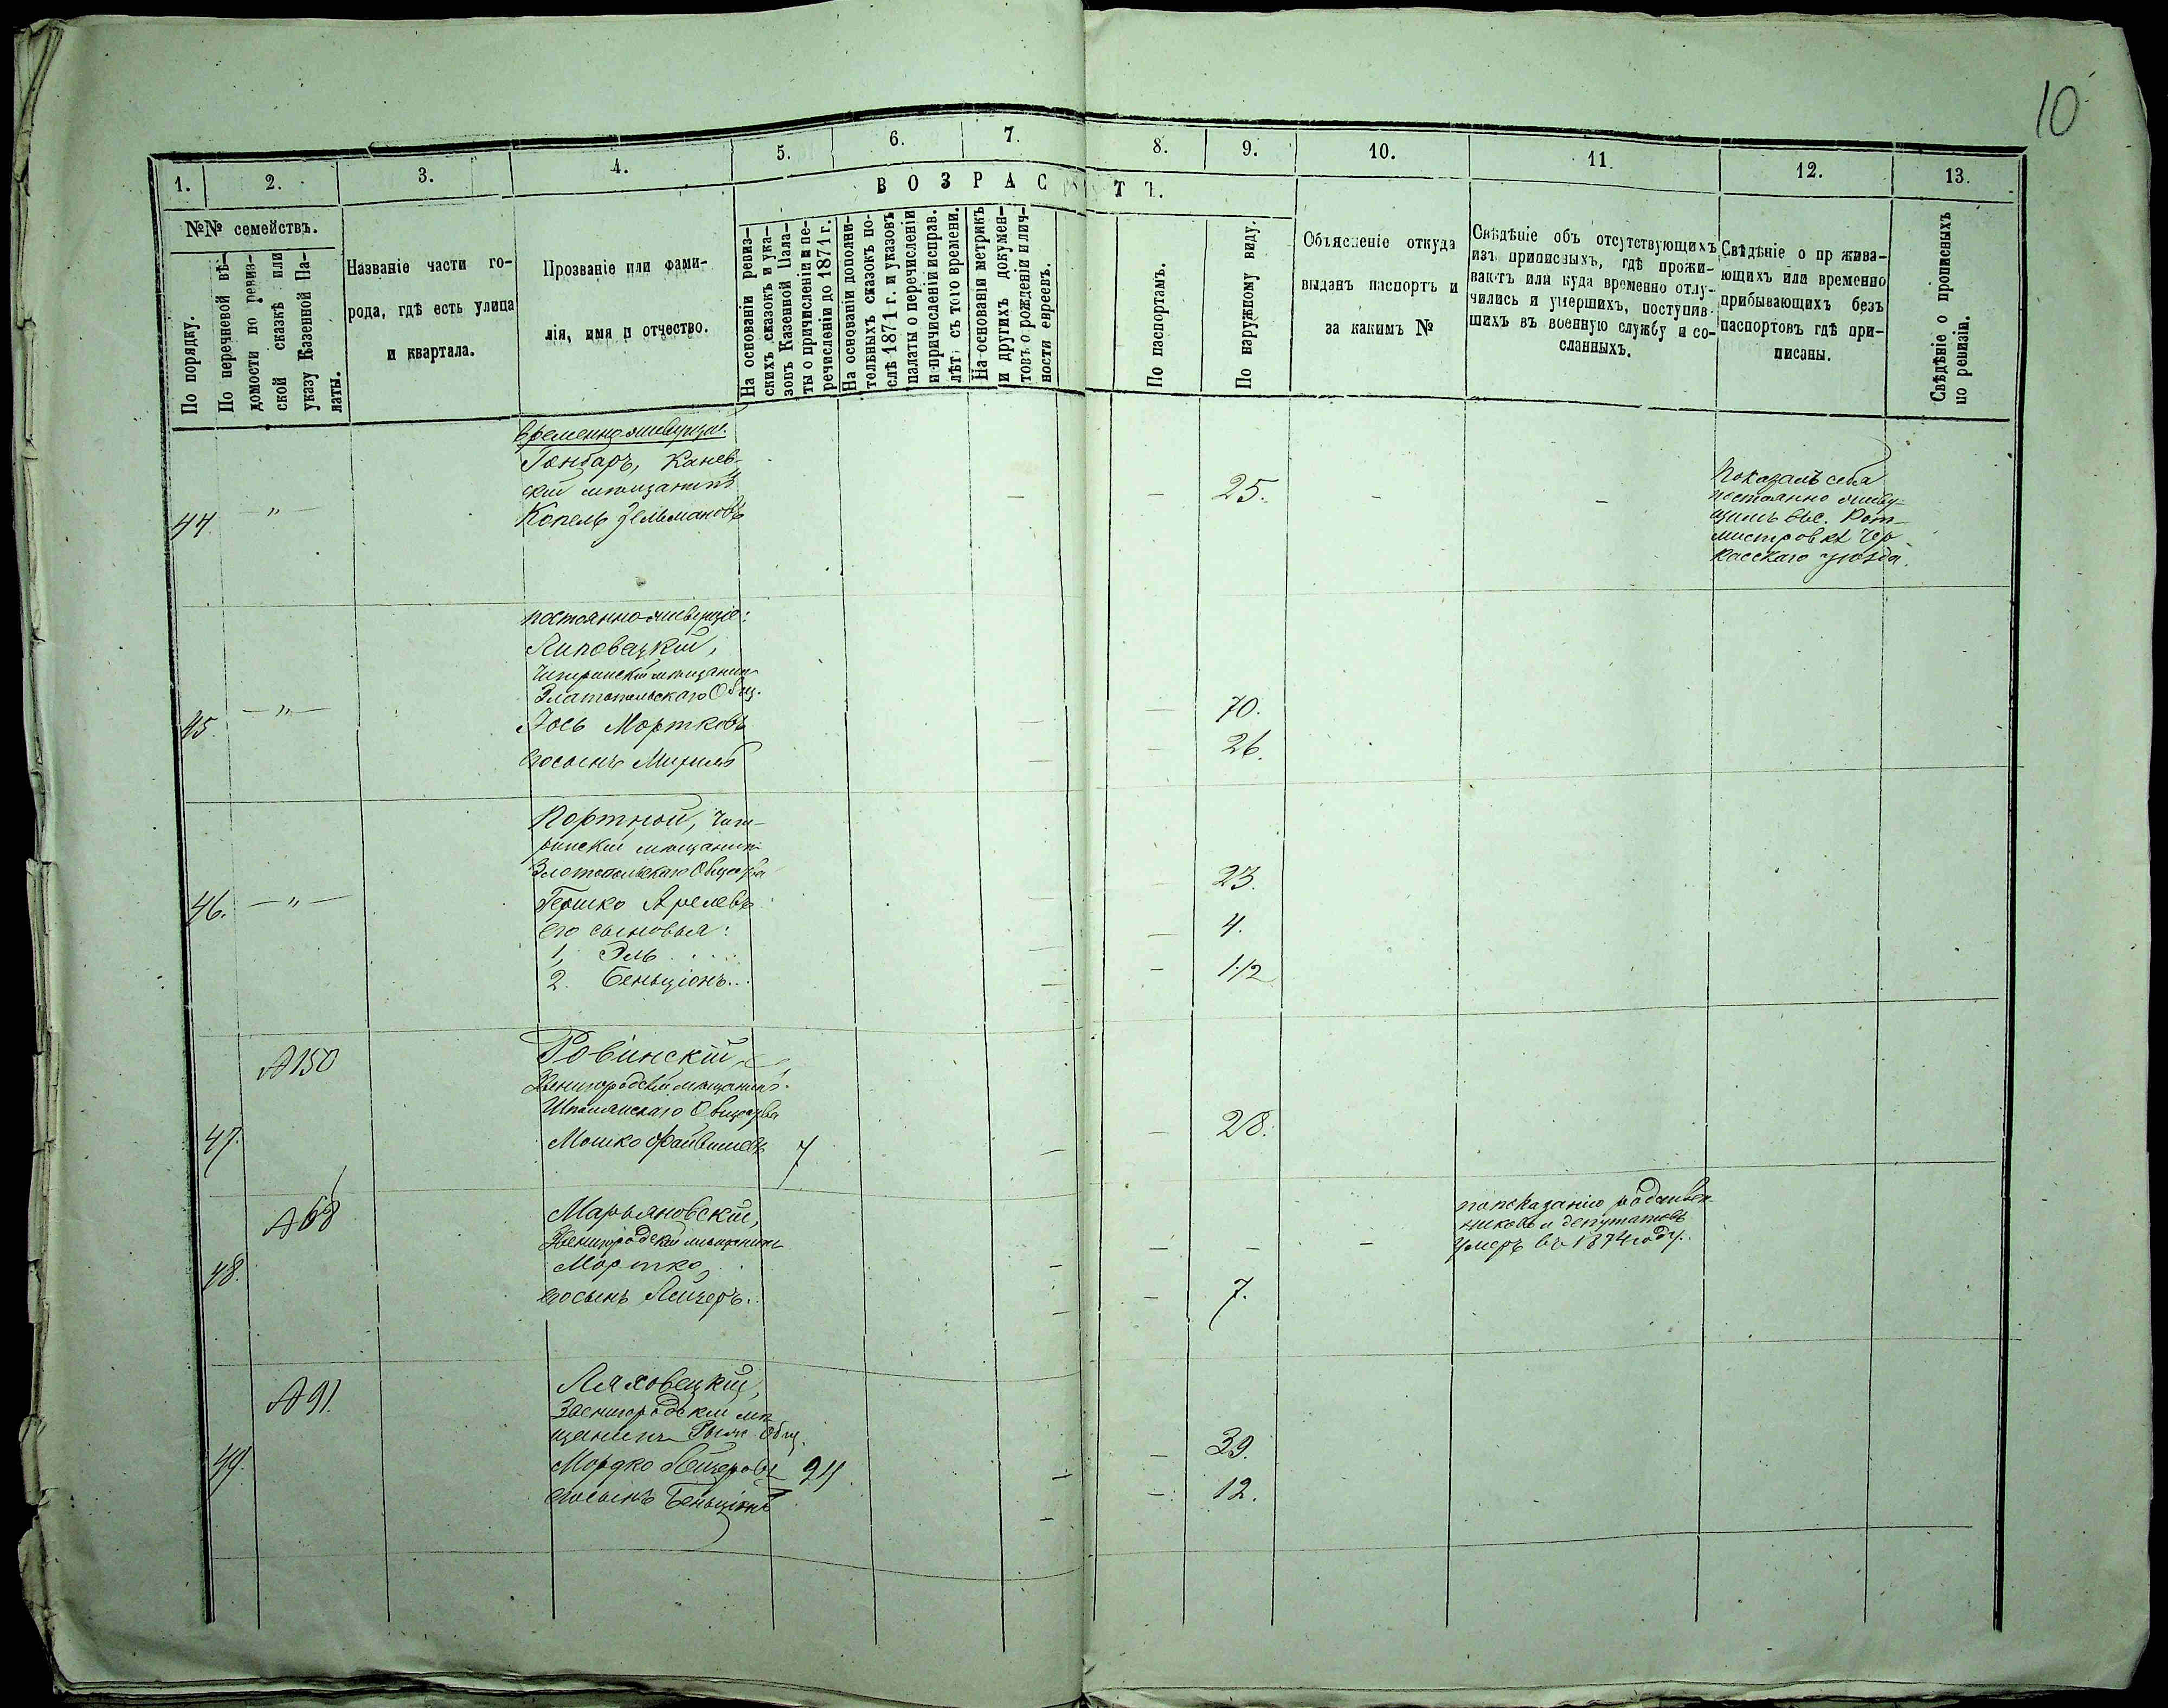 10
1. 2. 3. 4. 5. 6. 7. 8. 9. 10. 11. 12. 13.
№№ семействъ.
По порядку.
По перечневой вѣ-
домости по ревиз-
ской сказкѣ или
указу Казенной Па-
латы.
Названіе части го-
рода, гдѣ есть улица
и квартала.
Прозваніе или фами-
лія, имя и отчество.
ВОЗРАСТЪ.
На основаніи ревиз-
скихъ сказокъ и ука-
зовъ Казенной Пала-
ты о причисленіи и пе-
речисленіи до 1871 г.
На основаніи дополни-
тельныхъ сказокъ по-
слѣ 1871 г. и указовъ
палаты о перечисленіи
и причисленіи исправ.
лѣтъ съ того времени.
На основаніи метрикъ
и другихъ докумен-
товъ о рожденіи и лич-
ности евреевъ.
По паспортамъ.
По наружному виду.
Объясненіе откуда
выданъ паспортъ и
за какимъ №
Свѣдѣніе объ отсутствующихъ
изъ приписныхъ, гдѣ прожи-
ваютъ или куда временно отлу-
чились и умершихъ, поступив-
шихъ въ военную службу и со-
сланныхъ.
Свѣдѣніе о прожива-
ющихъ или временно
прибывающихъ безъ
паспортовъ гдѣ при-
писаны.
Свѣдѣніе о прописныхъ
по ревизіи.
Временно живущіе.
Гонтаръ, Канев-
скій мѣщанинъ
44 — " — Копель Зельмановъ — — 25. — —
Показалъ себя
постоянно живу-
щимъ въ с. Рот-
мистровкѣ Чер-
касскаго уѣзда.
постоянно живущіе:
Липовецкій,
Чигиринскій мѣщанинъ
Златопольскаго Общ.
45. — " — Іось Мортковъ — — 70.
его сынъ — — 26.
Портной, Чиги-
ринскій мѣщанинъ
Златопольскаго Общества
46. — " — Гершко — 23.
его сыновья: — — 4.
1, Эль
2. Беньціонъ... — — 1 1/2
№ 150 Ровинскій,
Звенигородскій мѣщанинъ
Шполянскаго Общества
47. Мошко Файвишевъ 7 — — 28.
№ 68 Марьяновскій,
Звенигородскій мѣщанинъ
48. Мортко — — — —
по показанію родствен-
никовъ и депутатовъ
умеръ въ 1874 году.
его сынъ Лейзеръ.. — — 7.
№ 91. Ляховецкій,
Звенигородскій мѣ-
щанинъ Общ.
49. Мордко Лейзеровъ 24 — — 39.
его сынъ Беньціонъ — — 12.